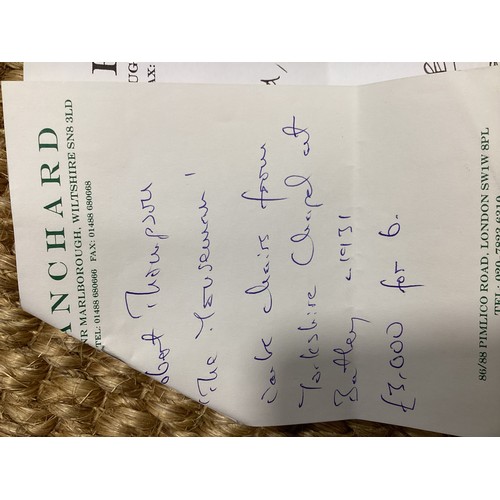 ANCHARD
NR MARLBOROUGH, WILTSHIRE SN8 3LD
TEL: 01488 680666 FAX: 01488 680668
obert Thompson
'The Mouseman'
oak chairs from
Yorkshire Chapel at
Batley c1931
£3,000 for 6.
86/88 PIMLICO ROAD, LONDON SW1W 8PL